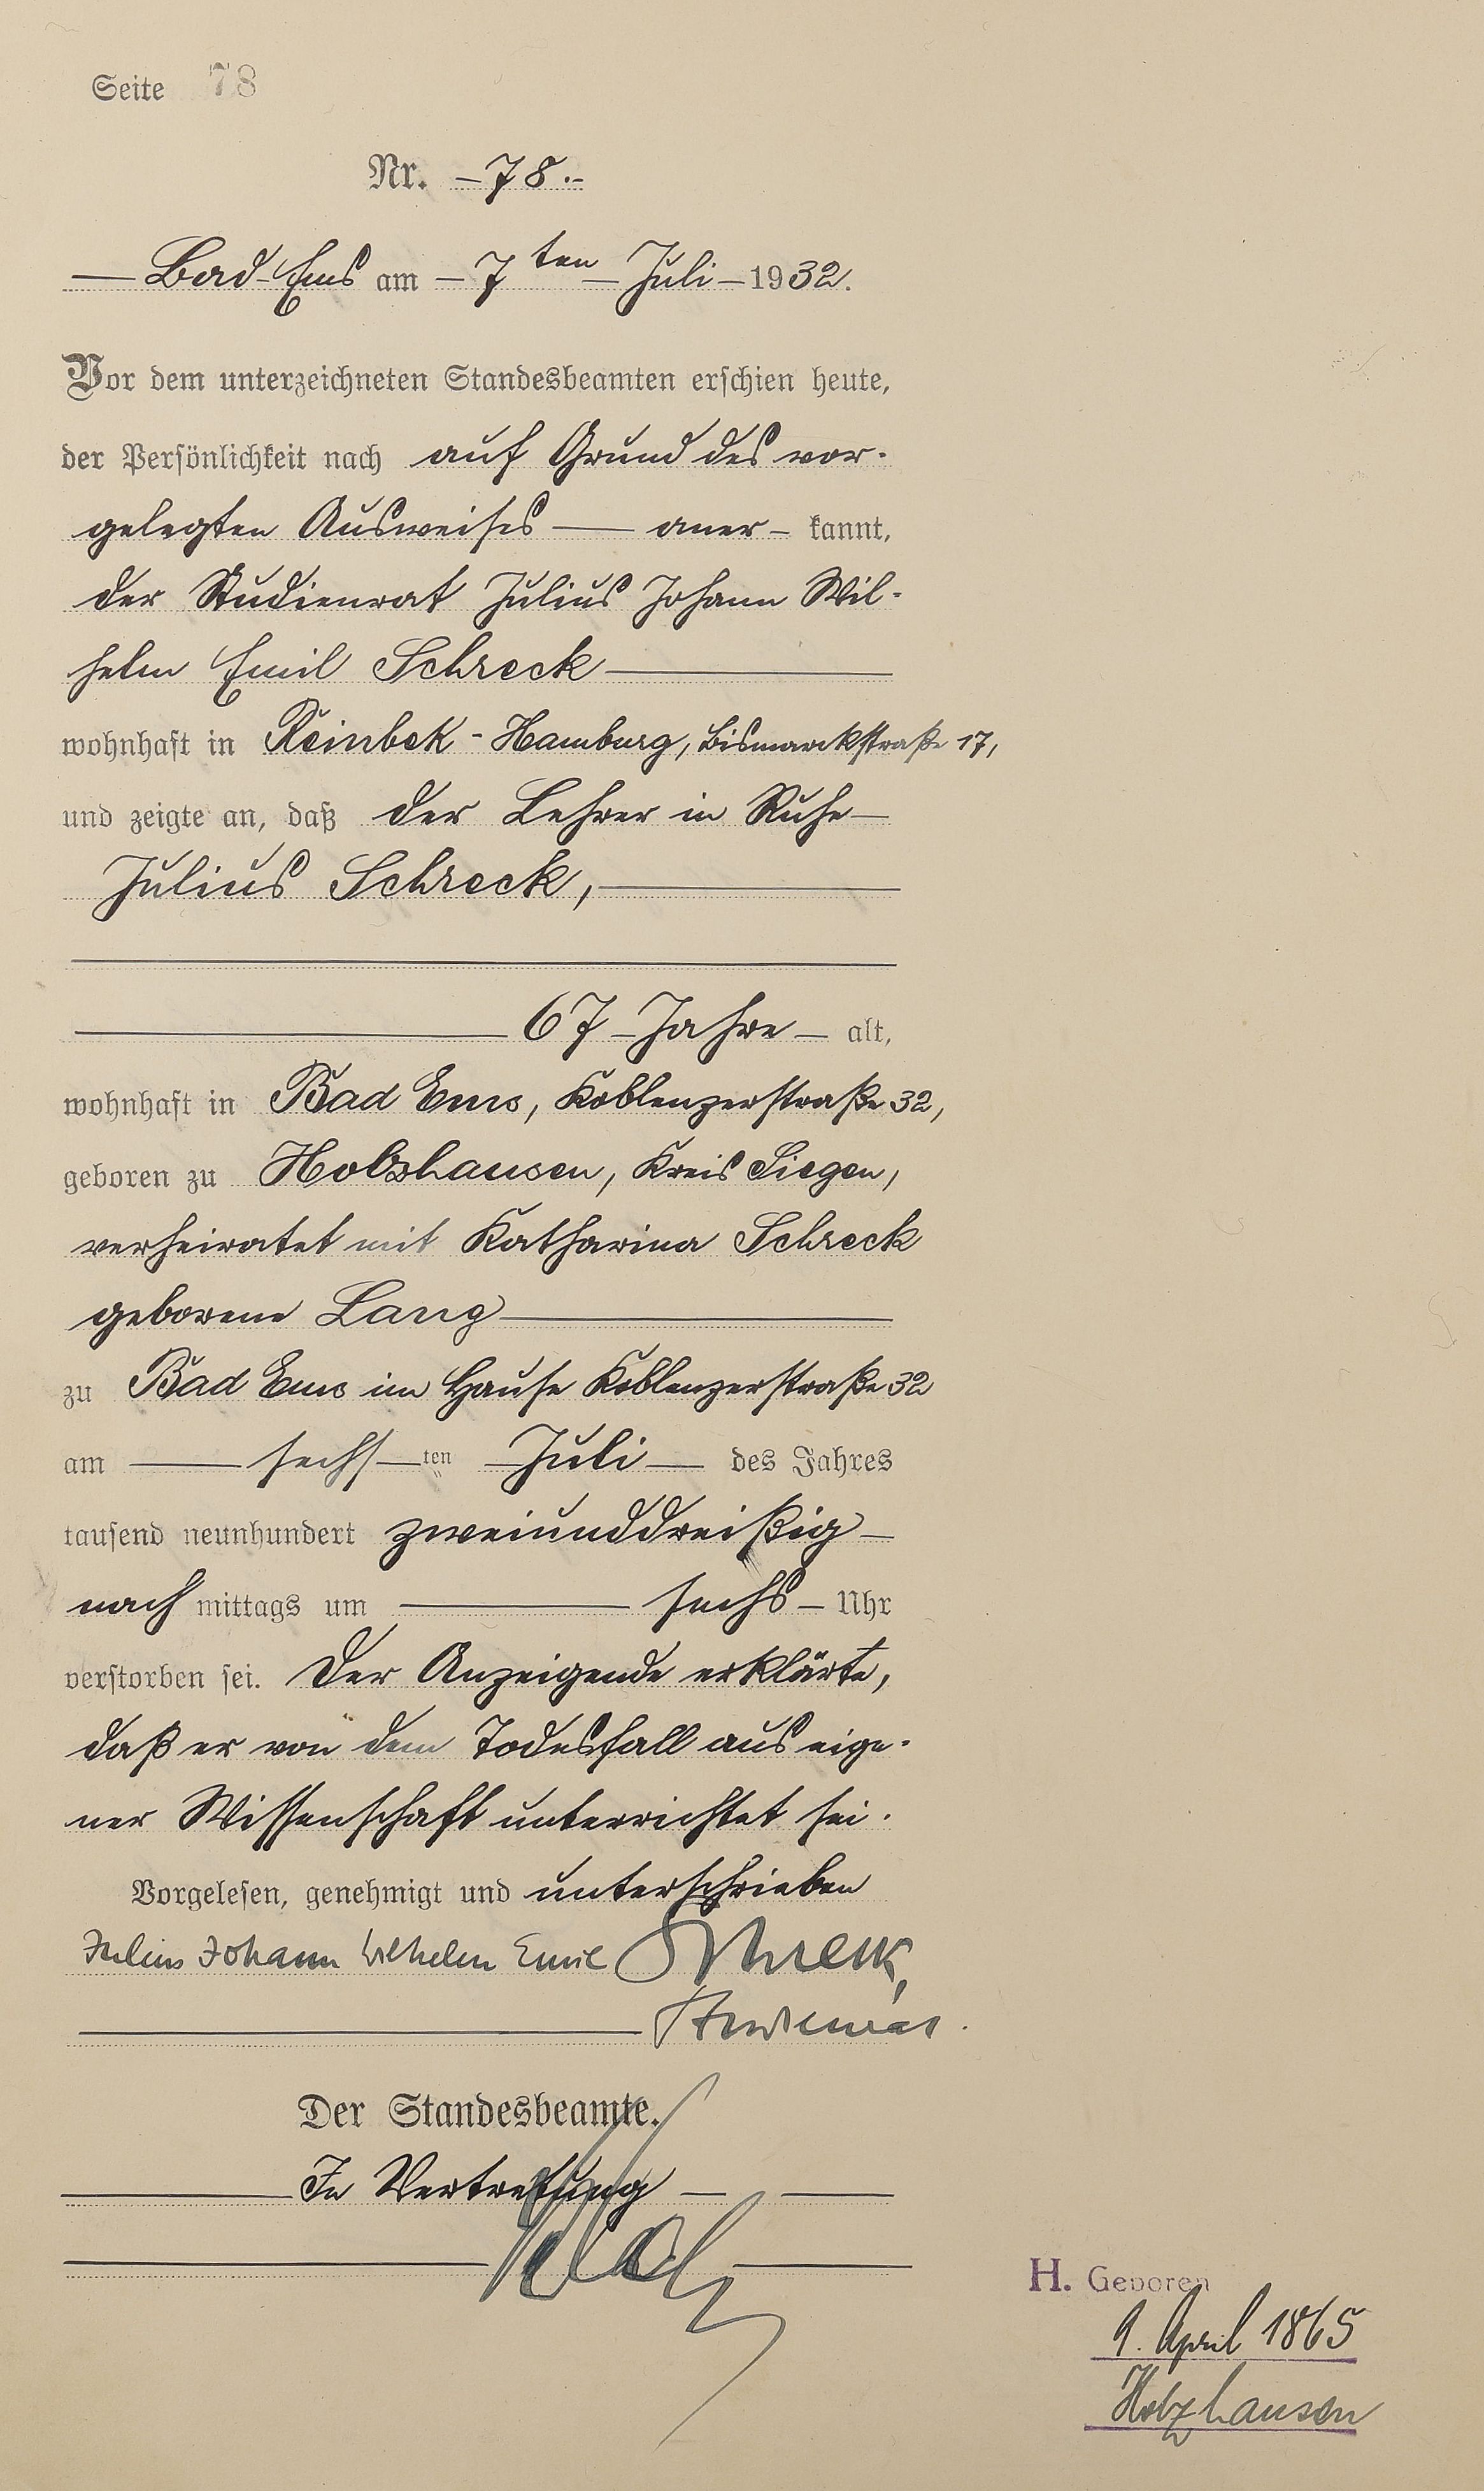 Seite 78
Nr. – 78. –
Bad-Ems am – 7 ten – Juli – 1932.
Vor dem unterzeichneten Standesbeamten erschien heute,
der Persönlichkeit nach auf Grund des vor-
gelegten Ausweises — aner – kannt,
der Studienrat Julius Johann Wil-
helm Emil Schreck
wohnhaft in Reinbek - Hamburg, Bismarckstraße 17,
und zeigte an, daß der Lehrer in Ruhe
Julius Schreck,
67 – Jahre – alt,
wohnhaft in Bad Ems, Koblenzerstraße 32,
geboren zu Holzhausen, Kreis Siegen,
verheiratet mit Katharina Schreck
geborene Lang
zu Bad Ems im Hause Koblenzerstraße 32
am — sechs – ten Juli — des Jahres
tausend neunhundert zweiunddreißig
nach mittags um — sechs – Uhr
verstorben sei. Der Anzeigende erklärte,
daß er von dem Todesfall aus eige-
ner Wissenschaft unterrichtet sei.
Vorgelesen, genehmigt und unterschrieben
Julius Johann Wilhelm Emil Schreck,
Studienrat.
Der Standesbeamte.
In Vertretung
H. Geboren
9. April 1865
Holzhausen